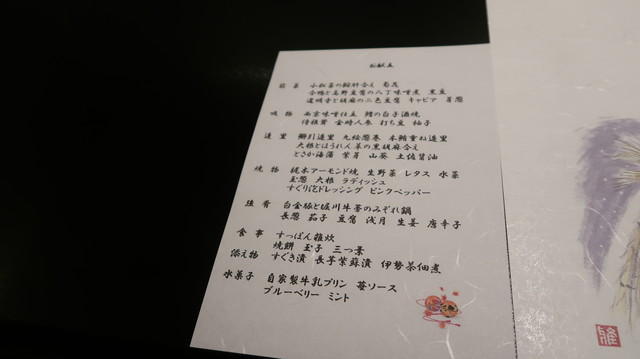 お献立
前菜 小松菜の鮟肝合え 菊花
合鴨と高野豆腐の八丁味噌煮 黒豆
道明寺と胡麻の二色豆腐 キャビア 芽葱
吸物 西京味噌仕立 鱈の白子酒焼
金時人参 打ち豆 柚子
造里 鰤引造里 九絵葱巻 本鮪重ね造里
大根とほうれん草の黒胡麻合え
とさか海藻 紫芽 山葵 土佐醤油
焼物 アーモンド焼 生野菜 レタス 水菜
玉葱 大根 ラディッシュ
すぐり泡ドレッシング ピンクペッパー
強肴 白金豚と堀川牛蒡のみぞれ鍋
長葱 茄子 豆腐 浅月 生姜 唐辛子
食事 すっぽん雑炊
焼餅 玉子 三つ葉
添え物 すぐき漬 長芋紫蘇漬 伊勢茶佃煮
水菓子 自家製牛乳プリン 苺ソース
ブルーベリー ミント